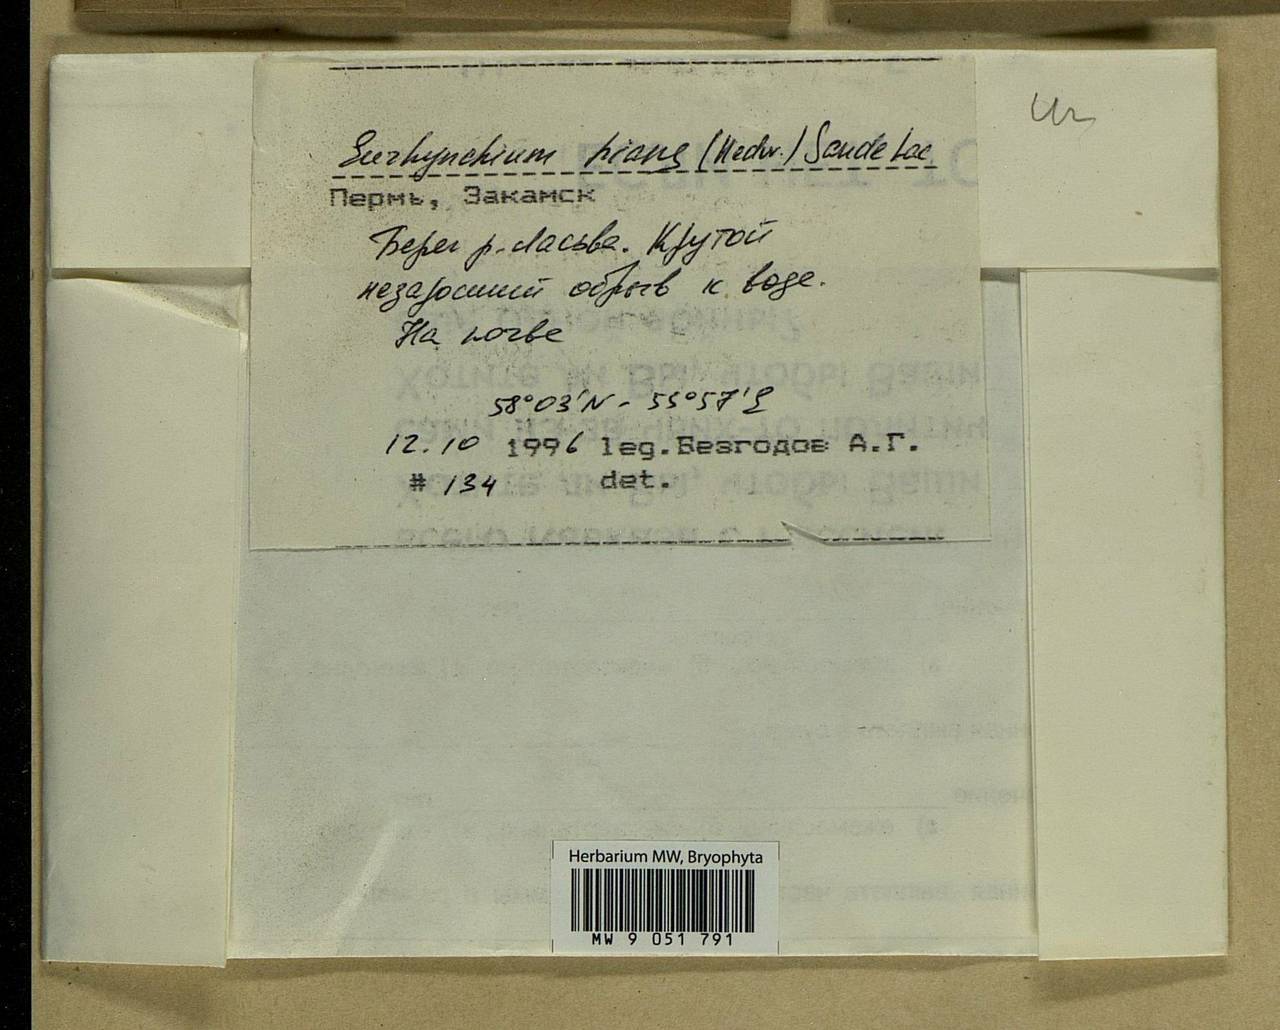 Eurhynchium hians (Hedw.) Sande Lac
Пермь, Закамск
Берег р. Ласьва. Крутой
незаросший обрыв к воде.
На почве
58°03'N - 55°57'E
12.10 1996 leg. Безгодов А.Г.
# 134 det.
Herbarium MW, Bryophyta
MW 9 051 791